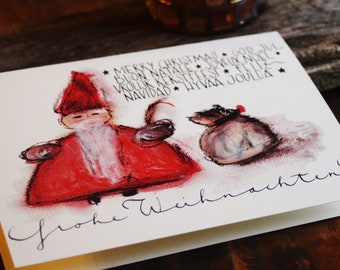 ★ MERRY CHRISTMAS ★ GOD JUL
BUON NATALE ★ JOYEUX NOËL
VROLIJK KERSTFEEST ★ FELIZ
NAVIDAD ★ HYVÄÄ JOULUA ★
Frohe Weihnachten!